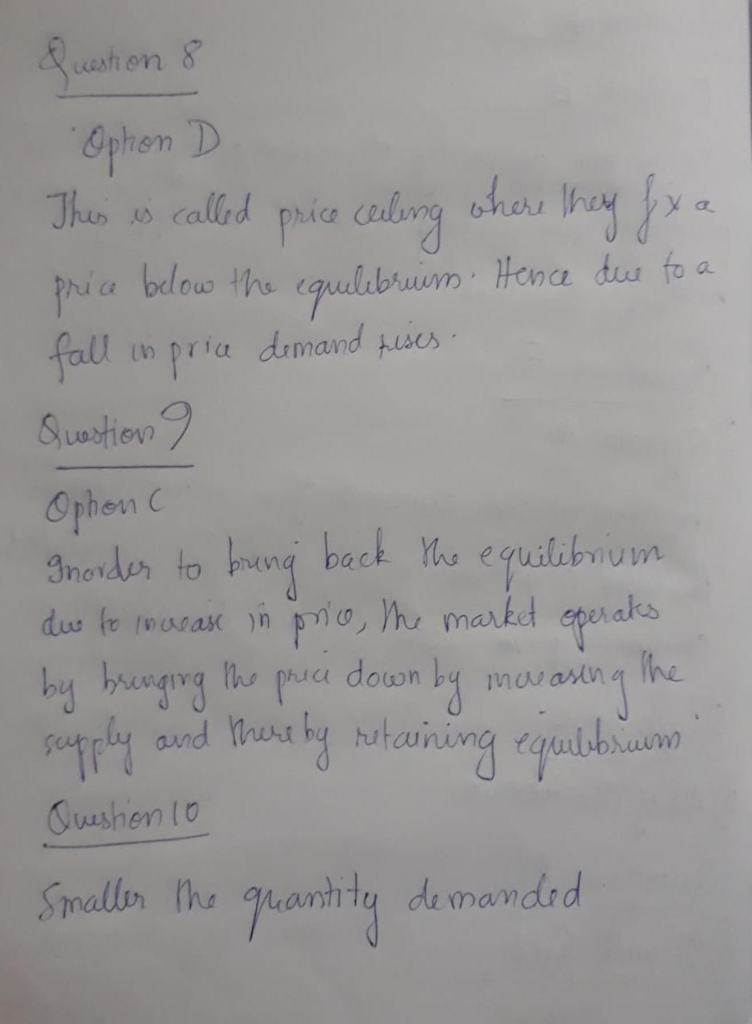 Question 8
Option D
This is called price ceiling where they fix a
price below the equilibrium. Hence due to a
fall in price demand rises.
Question 9
Option C
Inorder to bring back the equilibrium
due to increase in price, the market operates
by bringing the price down by increasing the
supply and thereby retaining equilibrium
Question 10
Smaller the quantity demanded